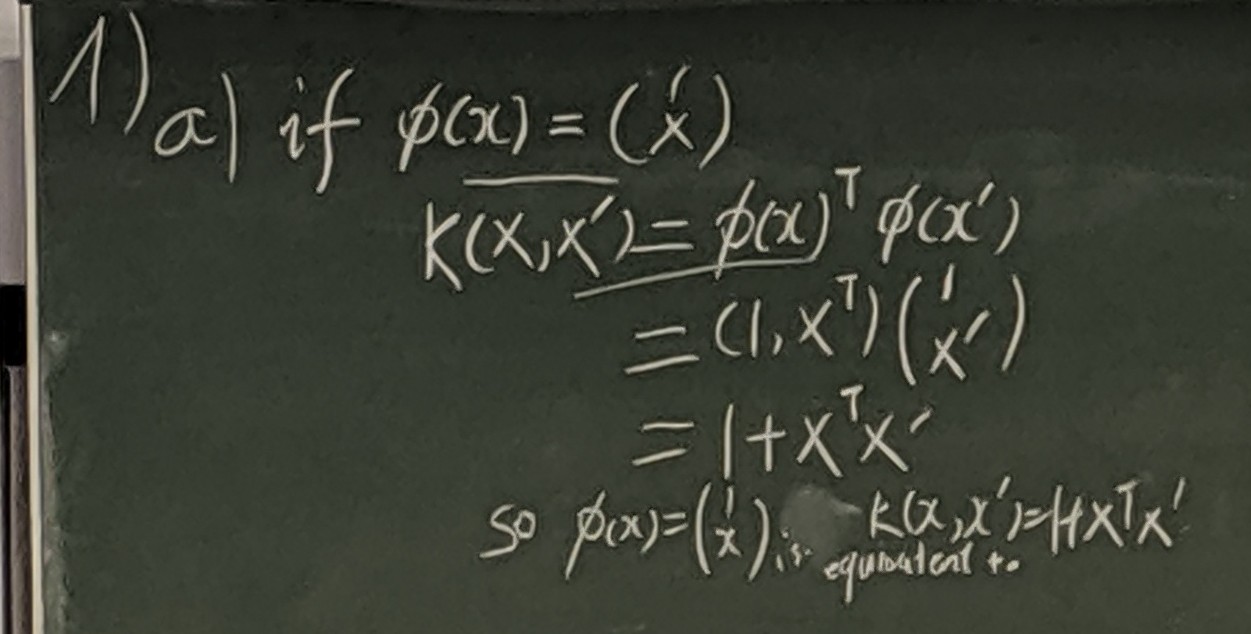 1) a) if ϕ(x) = (1 x)
K(x,x′) = ϕ(x)ᵀ ϕ(x′)
= (1, xᵀ) (1 x′)
= 1 + xᵀx′
so ϕ(x) = (1 x) is equivalent to K(x,x′) = 1+xᵀx′